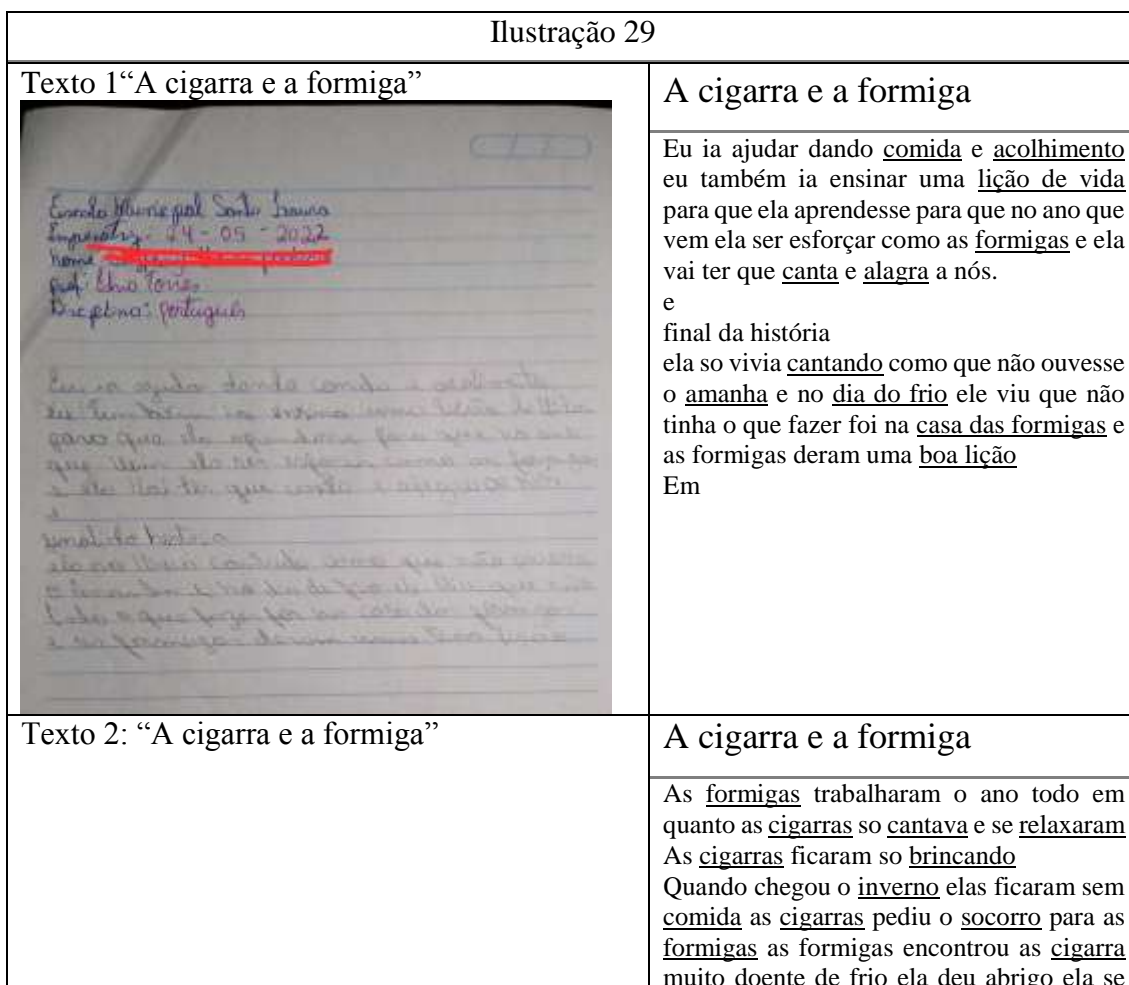 Ilustração 29
Texto 1“A cigarra e a formiga”
Escola Municipal Santa Laura
Imperatriz - 24 - 05 - 2022
nome
prof: Elva Torres
Disciplina: português
Eu ia ajuda dando comida e
eu também ia ensina uma lição de vida
para que ela para que no ano
que vem ela ser esforça como as formigas
e ela vai ter que canta e
e
final da historia
ela so vivia cantando como que não ouvesse
o e no dia do frio ele viu que não
tinha o que fazer foi na casa das formigas
e as formigas deram uma boa lição
A cigarra e a formiga
Eu ia ajudar dando comida e acolhimento
eu também ia ensinar uma lição de vida
para que ela aprendesse para que no ano que
vem ela ser esforçar como as formigas e ela
vai ter que canta e alagra a nós.
e
final da história
ela so vivia cantando como que não ouvesse
o amanha e no dia do frio ele viu que não
tinha o que fazer foi na casa das formigas e
as formigas deram uma boa lição
Em
Texto 2: “A cigarra e a formiga”
A cigarra e a formiga
As formigas trabalharam o ano todo em
quanto as cigarras so cantava e se relaxaram
As cigarras ficaram so brincando
Quando chegou o inverno elas ficaram sem
comida as cigarras pediu o socorro para as
formigas as formigas encontrou as cigarra
muito doente de frio ela deu abrigo ela se